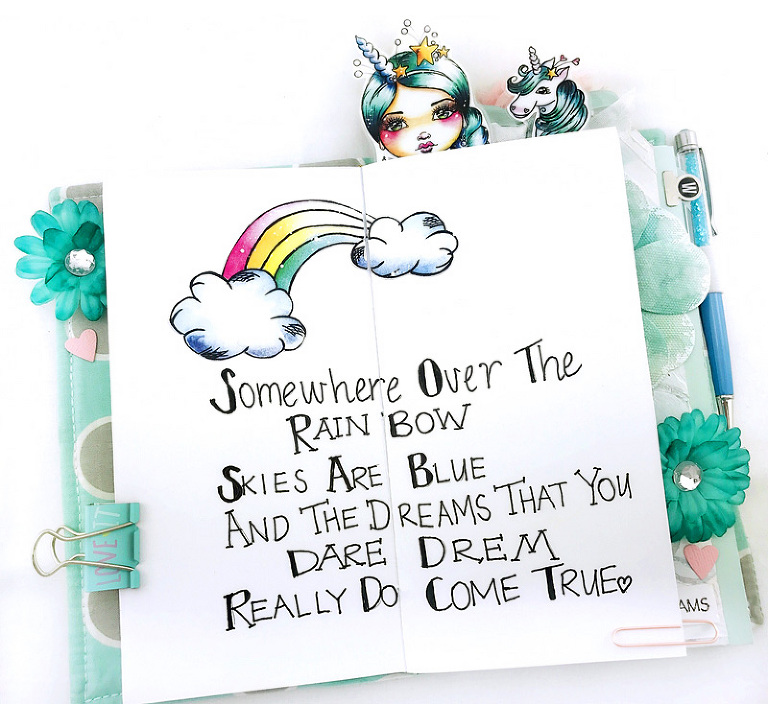 Somewhere Over The
RAIN BOW
SKIES ARE BLUE
AND THE DREAMS THAT YOU
DARE DREM
REALLY DO COME TRUE
LOVE IT
W
AMS